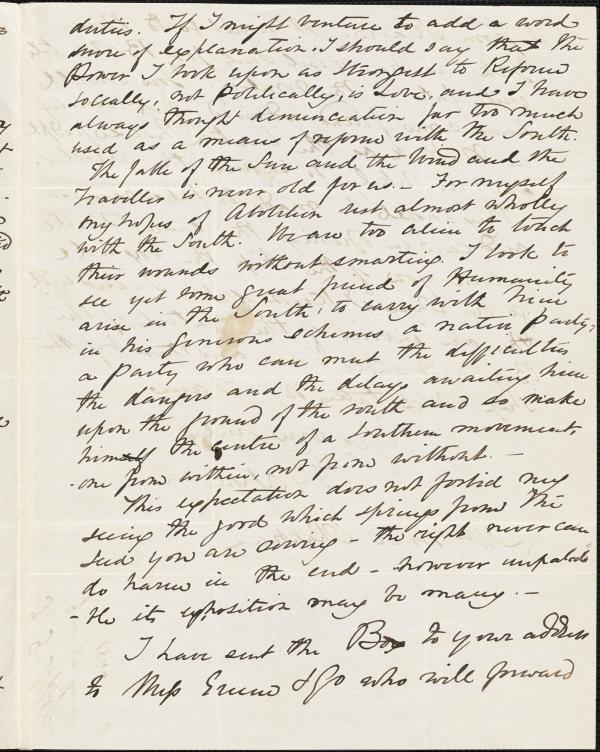 duties. If I might venture to add a word
more of explanation. I should say that the
Power I look upon as strongest to Reform
socially, not Politically, is Love, and I have
always thought denunciation far too much
used as a means of reform with the South.
The fable of the Sun and the Wind and the
Traveller is never old for us. - For myself
my hopes of Abolition rest almost wholly
with the South. We are too alien to touch
their wounds without smarting. I look to
see yet some great friend of Humanity
arise in the South, to carry with him
in his generous schemes a native Party,
a party who can meet the difficulties
the dangers and the delays awaiting him
upon the ground of the South and so make
himself the centre of a Southern movement,
- one from within, not from without. -
This expectation does not forbid my
seeing the good which springs from the
seed you are sowing - the right never can
do harm in the end - however unpalata
- ble its exposition may be to many. -
I have sent the Box to your address
to Miss & Co who will forward